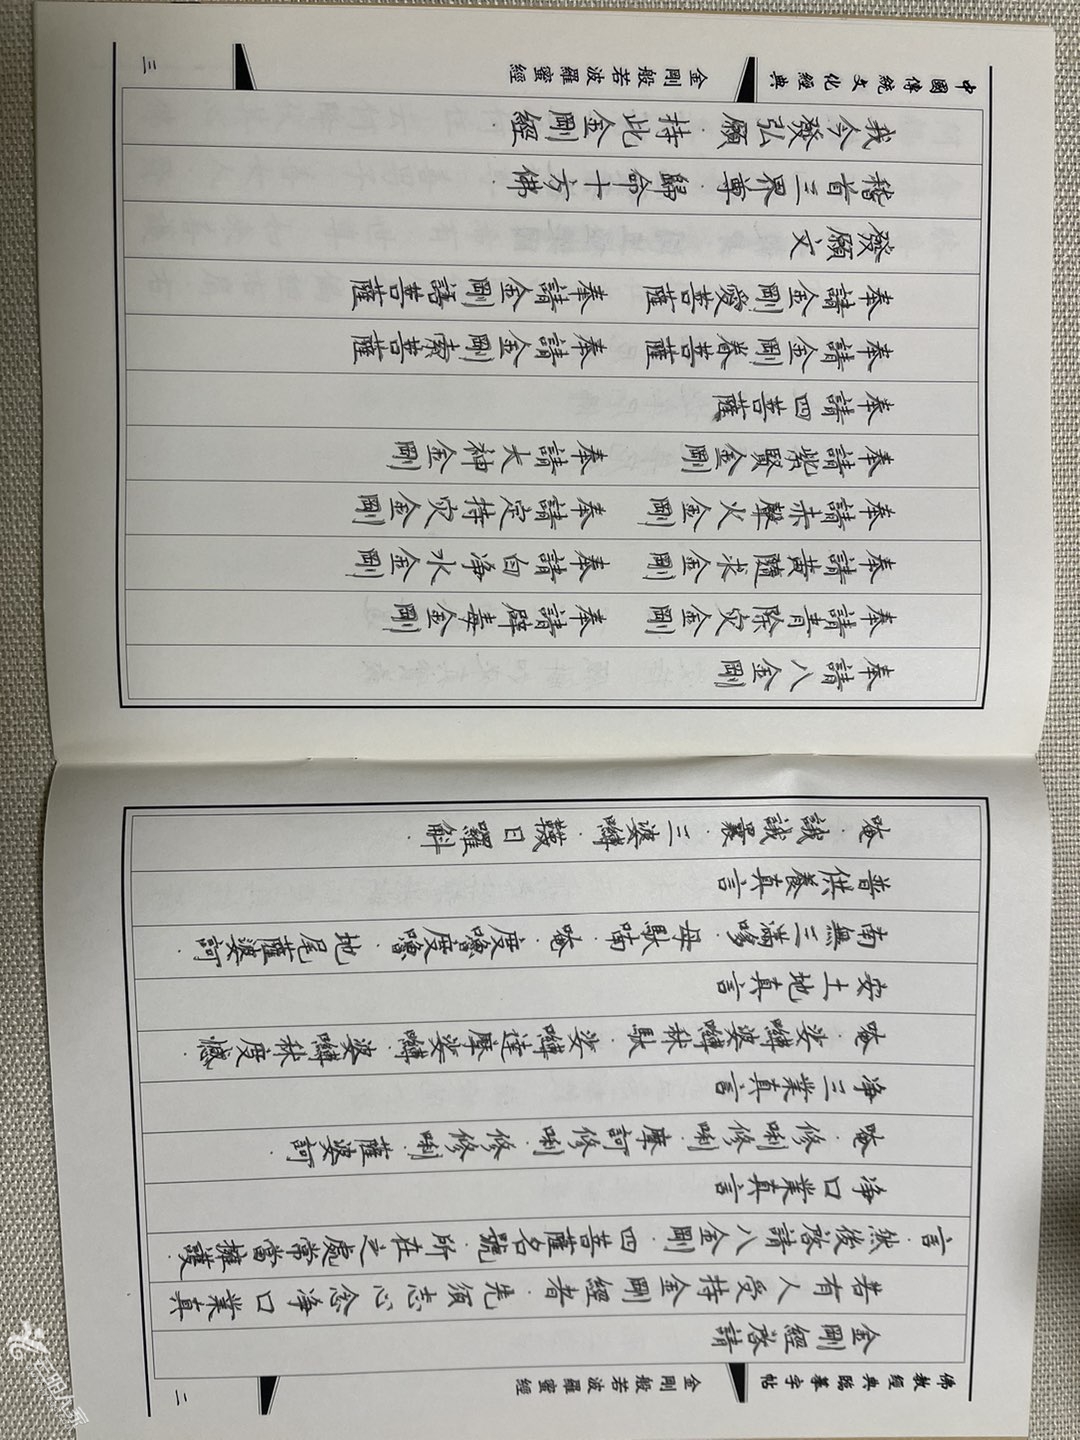 佛教經典臨摹字帖
金剛般若波羅蜜經
二
金剛經啓請
若有人受持金剛經者·先須志心念净口業真
言·然後啓請八金剛·四菩薩名號·所在之處常當擁護·
净口業真言
唵·修唎修唎·摩訶修唎·修修唎·薩婆訶
净三業真言
唵·娑嚩婆嚩秫馱·娑嚩達摩娑嚩·婆嚩秫度憾
安土地真言
南無三滿哆·母馱喃·唵·度嚕度嚕·地尾薩婆訶·
普供養真言
唵·誐誐曩·三婆嚩·韈日囉斛·
奉請八金剛
奉請青除災金剛 奉請辟毒金剛
奉請黃隨求金剛 奉請白净水金剛
奉請赤聲火金剛 奉請定持災金剛
奉請紫賢金剛 奉請大神金剛
奉請四菩薩
奉請金剛眷菩薩 奉請金剛索菩薩
奉請金剛愛菩薩 奉請金剛語菩薩
發願文
稽首三界尊·歸命十方佛
我今發弘願·持此金剛經
中國傳統文化經典
金剛般若波羅蜜經
三